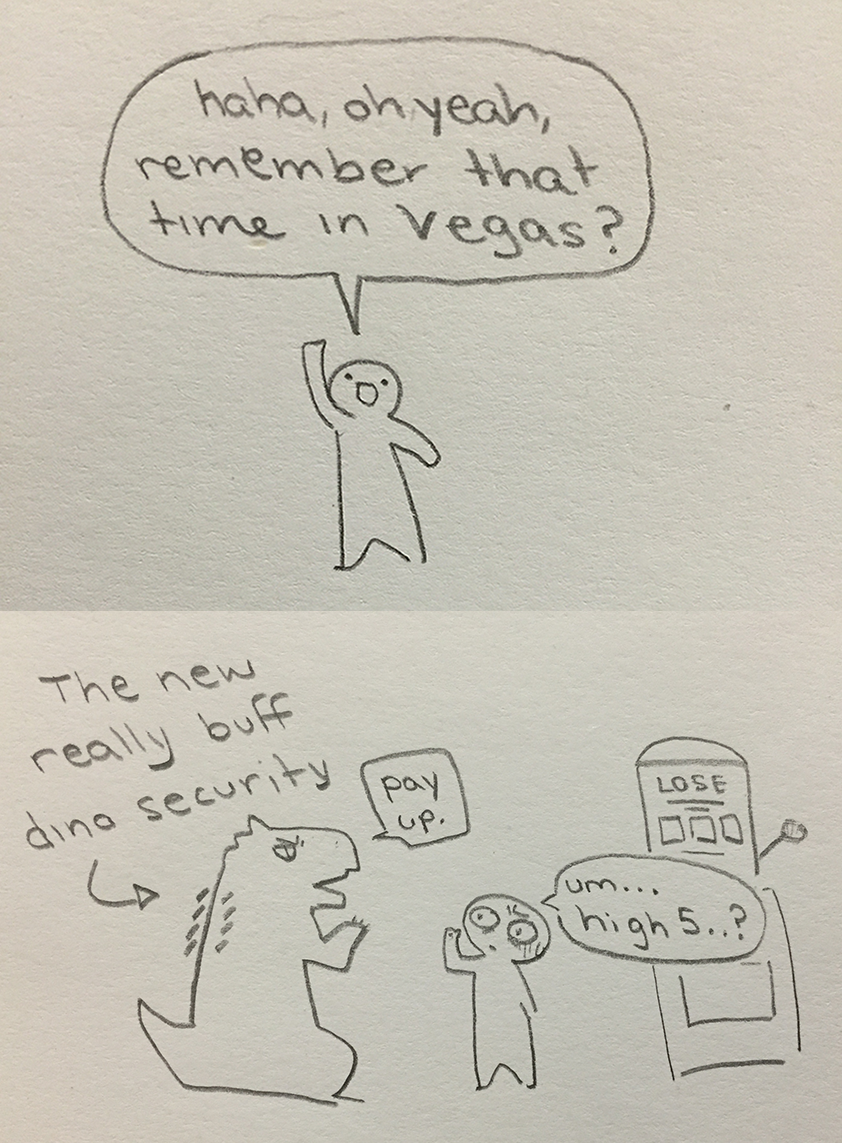 haha, oh yeah,
remember that
time in Vegas?
The new
really buff
dino security
pay
up.
LOSE
um...
high 5..?